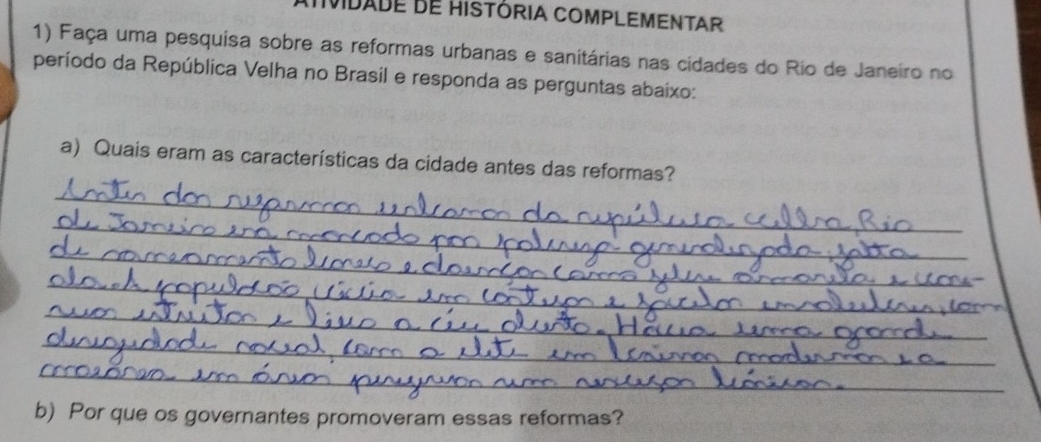 ATIVIDADE DE HISTÓRIA COMPLEMENTAR
1) Faça uma pesquisa sobre as reformas urbanas e sanitárias nas cidades do Rio de Janeiro no
período da República Velha no Brasil e responda as perguntas abaixo:
a) Quais eram as características da cidade antes das reformas?
Antes das reformas urbanas da república velha, Rio
de Janeiro era marcado por pobreza generalizada, falta
de saneamento básico e doenças como febre amarela e
a população vivia em cortiços e
e lixo a céu aberto. Havia uma grande
desigualdade social, com a elite em bairros modernos e a
em áreas sem serviços básicos.
b) Por que os governantes promoveram essas reformas?